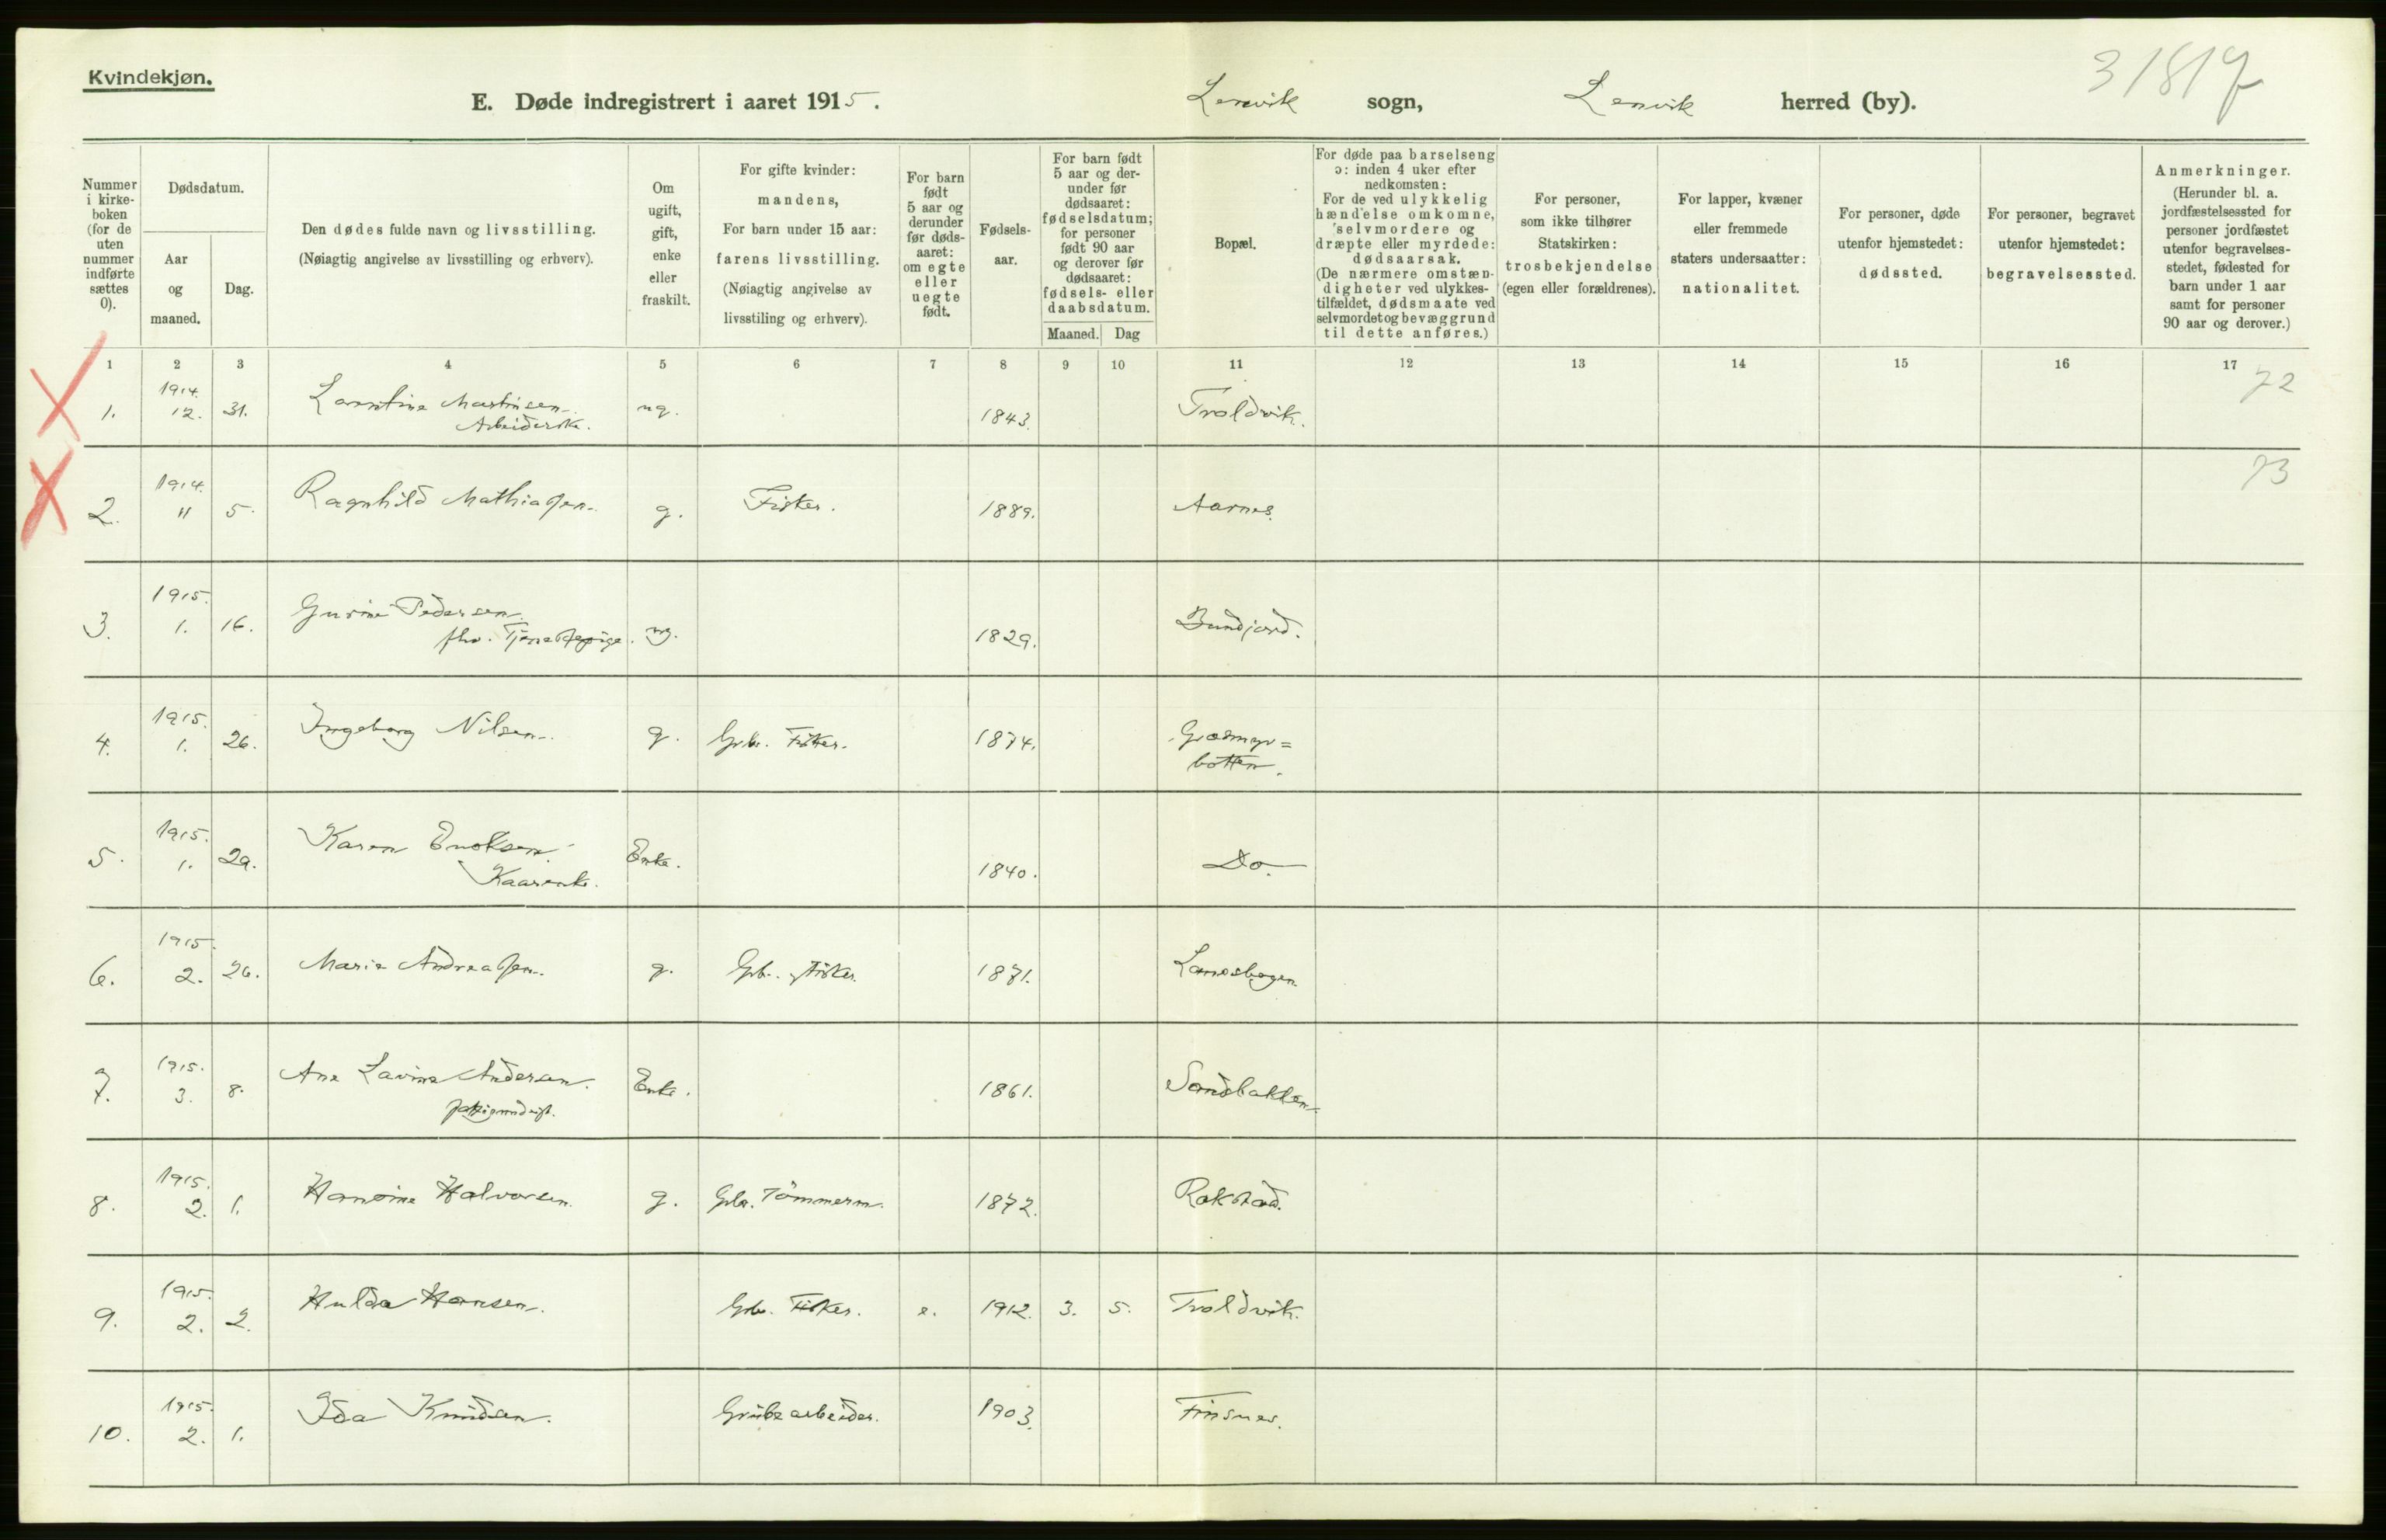 Kvindekjøn.
E. Døde indregistrert i aaret 1915.
Lenvik sogn, Lenvik herred (by).
Nummer i kirke-boken (for de uten nummer indførte sættes 0).
Dødsdatum.
Aar og maaned.
Dag.
Den dødes fulde navn og livsstilling.
(Nøiagtig angivelse av livsstilling og erhverv).
Om ugift, gift, enke eller fraskilt.
For gifte kvinder:
mandens,
For barn under 15 aar:
farens livsstilling.
(Nøiagtig angivelse av
livsstiling og erhverv).
For barn født 5 aar og derunder før døds-aaret: om egte eller uegte født.
Fødsels-aar.
For barn født
5 aar og der-
under før
dødsaaret:
fødselsdatum;
for personer
født 90 aar
og derover før
dødsaaret:
fødsels- eller
daabsdatum.
Maaned. Dag
Bopæl.
For døde paa barselseng
ɔ: inden 4 uker efter
nedkomsten:
For de ved ulykkelig
hændelse omkomne,
selvmordere og
dræpte eller myrdede:
dødsaarsak.
(De nærmere omstæn-
digheter ved ulykkes-
tilfældet, dødsmaate ved
selvmordet og bevæggrund
til dette anføres.)
For personer,
som ikke tilhører
Statskirken:
trosbekjendelse
(egen eller forældrenes).
For lapper, kvæner
eller fremmede
staters undersaatter:
nationalitet.
For personer, døde
utenfor hjemstedet:
dødssted.
For personer, begravet
utenfor hjemstedet:
begravelsessted.
Anmerkninger.
(Herunder bl. a.
jordfæstelsessted for
personer jordfæstet
utenfor begravelses-
stedet, fødested for
barn under 1 aar
samt for personer
90 aar og derover.)
1 2 3 4 5 6 7 8 9 10 11 12 13 14 15 16 17
1914. 72
1. 12. 31. Martinsen ug. 1843. Troldvik.
Arbeiderske.
1914. 73
2. 11 5. Ragnhild Mathiassen. g. Fisker. 1889. Aarnes.
1915.
3. 1. 16. Gurine Pedersen ug. 1829. Bundjord.
fhv. Tjenestepige.
1915.
4. 1. 26. Ingeborg Nilsen. g. Gbr. Fisker. 1874. Græsmyr=
botten.
1915.
5. 1. 29. Karen Enoksen. Enke. 1840. Do.
Kaarenke.
1915.
6. 2. 26. Marie Andreassen. g. Gbr. Fisker. 1871.
1915.
7. 3. 8. Ane Lavine Andersen. Enke. 1861. Sandbakken.
1915.
8. 2. 1. Hansine Halvorsen. g. Gbr. Tömmerm. 1872. Rakstad.
1915.
9. 2. 2. Hulda Hansen. Gbr. Fisker. e. 1912. 3. 5. Troldvik.
1915.
10. 2. 1. Ida Knudsen. Grubearbeider. 1903. Finsnes.